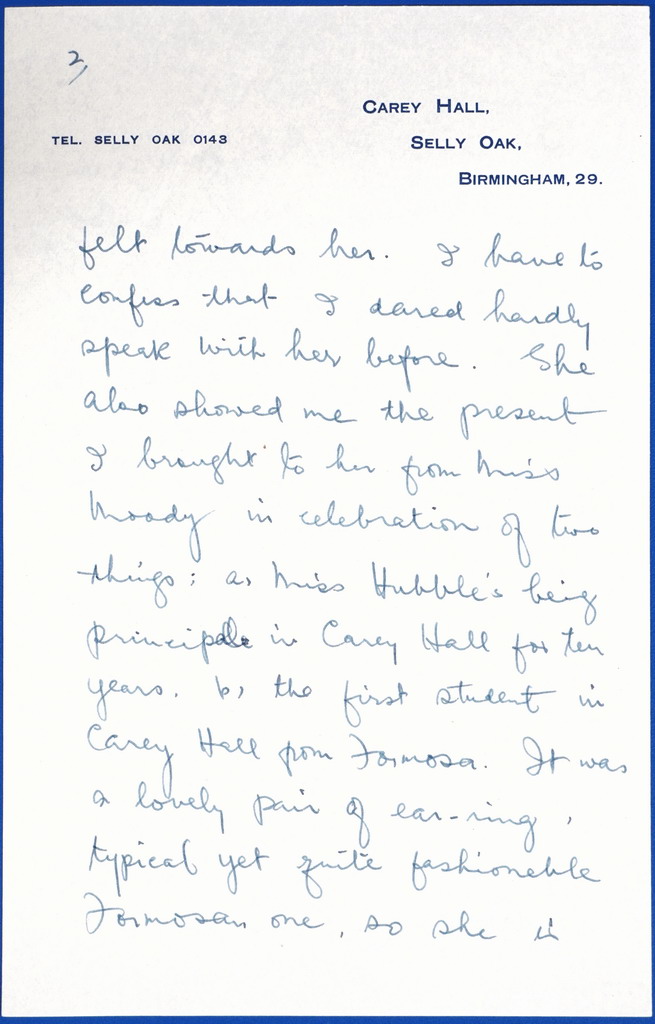 2,
CAREY HALL,
TEL. SELLY OAK 0143
SELLY OAK,
BIRMINGHAM, 29.
felt towards her. I have to
confess that I dared hardly
speak with her before. She
also showed me the present
I brought to her from Miss
Moody in celebration of two
things; a, Miss Hubble's being
principal in Carey Hall for ten
years. b, the first student in
Carey Hall from Formosa. It was
a lovely pair of ear-ring,
typical yet quite fashionable
Formosan one, so she is